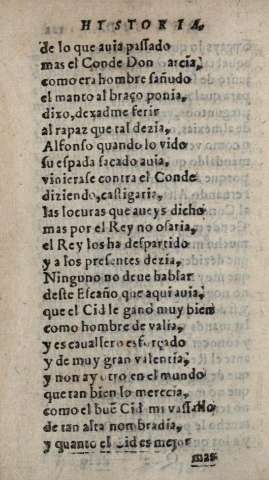 HYSTORIA,
de lo que auia passado
mas el Conde Don arcia,
como era hombre sañudo
el manto al braço ponia,
dixo, dexadme ferir
al rapaz que tal dezia,
Alfonso quando lo vido
su espada sacado auia,
vinierase contra el Conde
diziendo, castigaria,
las locuras que aueys dicho
mas por el Rey no osaria,
el Rey los ha despartido
y a los presentes dezia,
Ninguno no deue hablar
deste Escaño que aqui auia,
que el Cid le gano muy bien
como hombre de valia,
y es cauallero esforçado
y de muy gran valentia,
y non ay otro en el mundo
que tan bien lo merecia,
como el buẽ Cid mi vassallo
de tan alta nombradia,
y quanto el Cid es mejor
mas